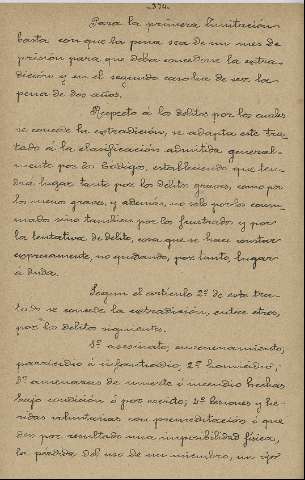 -374-
Para la primera tramitación
basta con que la pena sea de un mes de
prisión para que deba concederse la extra-
dición y en el segundo caso ha de ser la
pena de dos años.
Respecto á los delitos por los cuales
se concede la extradición, se adapta este tra-
tado á la clasificación admitida general-
mente por los Códigos, estableciendo que ten-
drá lugar tanto por los delitos graves, como por
los menos graves, y además, no sólo por los consu-
mados sino tambien por los frustrados y por
la tentativa de delito, cosa que se hace constar
expresamente, no quedando, por tanto, lugar
á duda.
Segun el artículo 2º de este tra-
tado se concede la extradición, entre otros,
por los delitos siguientes.
1º asesinato, envenenamiento,
parricidio é infanticidio, 2º homicidio,
3º amenazas de muerte ó incendio hechas
bajo condición ó por escrito; 4º lesiones y he-
ridas voluntarias con premeditación ó que
den por resultado una imposibilidad física,
la pérdida del uso de un miembro, un ojo